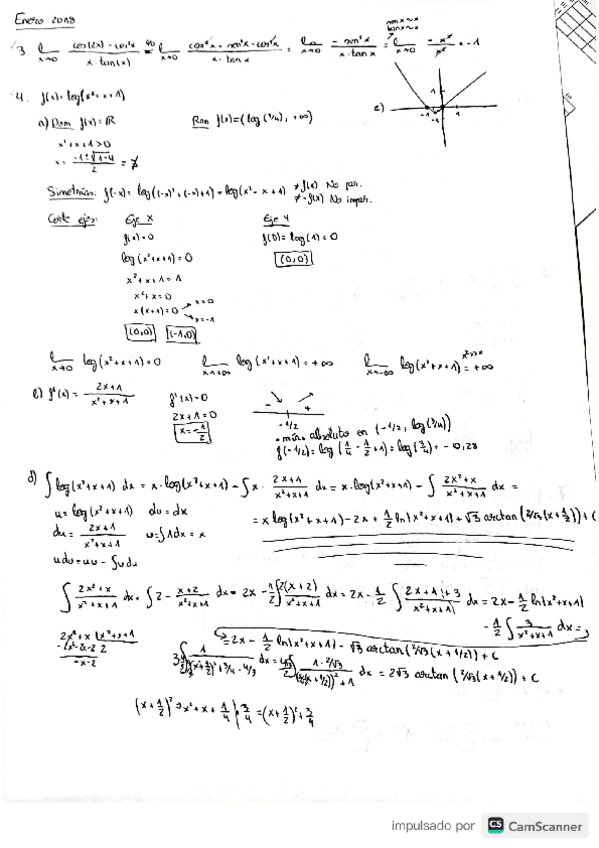 Enero 2018
3. lim x→0 cos(2x) - cos²x / x · tan(x) = lim x→0 cos²x - sen²x - cos²x / x · tan x = lim x→0 - sen²x / x · tan x = lim x→0 - x² / x² = -1
sen x ~ x
tan x ~ x
4. f(x) = log(x² + x + 1)
a) Dom f(x) = ℝ Ran f(x) = (log(3/4), +∞)
c)
x² + x + 1 > 0
x = -1 ± √1-4 / 2 = ∄
Simetrías: f(-x) = log((-x)² + (-x) + 1) = log(x² - x + 1) ≠ f(x) No par.
≠ -f(x) No impar.
Corte ejes: Eje X Eje Y
f(x) = 0 f(0) = log(1) = 0
log(x² + x + 1) = 0 (0,0)
x² + x + 1 = 1
x² + x = 0
x(x + 1) = 0 x = 0
x = -1
(0,0) (-1,0)
lim x→0 log(x² + x + 1) = 0 lim x→+∞ log(x² + x + 1) = +∞ lim x→-∞ log(x² + x + 1) = +∞
x² >> x
b) f'(x) = 2x + 1 / x² + x + 1 f'(x) = 0 - +
2x + 1 = 0 -1/2
x = -1/2 mín absoluto en (-1/2, log(3/4))
f(-1/2) = log(1/4 - 1/2 + 1) = log(3/4) = -0,28
d) ∫ log(x² + x + 1) dx = x · log(x² + x + 1) - ∫ x · 2x + 1 / x² + x + 1 dx = x · log(x² + x + 1) - ∫ 2x² + x / x² + x + 1 dx =
u = log(x² + x + 1) dv = dx
= x log(x² + x + 1) - 2x + 1/2 ln|x² + x + 1| + √3 arctan(2/√3 (x + 1/2)) + C
du = 2x + 1 / x² + x + 1 v = ∫ 1 dx = x
u dv = uv - ∫ v du
∫ 2x² + x / x² + x + 1 dx = ∫ 2 - x + 2 / x² + x + 1 dx = 2x - 1/2 ∫ 2(x + 2) / x² + x + 1 dx = 2x - 1/2 ∫ 2x + 1 + 3 / x² + x + 1 dx = 2x - 1/2 ln|x² + x + 1|
- 1/2 ∫ 3 / x² + x + 1 dx =
= 2x - 1/2 ln|x² + x + 1| - √3 arctan(2/√3 (x + 1/2)) + C
2x² + x | x² + x + 1
-2x² - 2x - 2 2
-x - 2
dx = 2√3 arctan(2/√3 (x + 1/2)) + C
(x + 1/2)² → x² + x + 1/4 + 3/4 = (x + 1/2)² + 3/4
impulsado por CS CamScanner